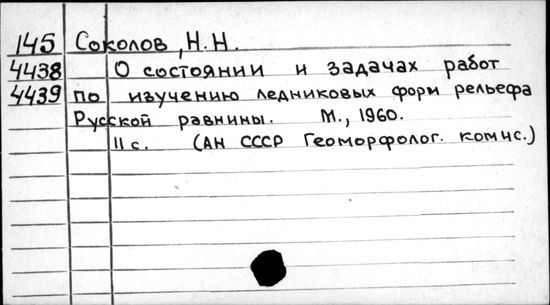 145 Соколов, Н.Н.
4438 О состоянии и задачах работ
4439 по изучению ледниковых форм рельефа
Русской равнины. М., 1960.
11 с. (АН СССР Геоморфолог. комис.)